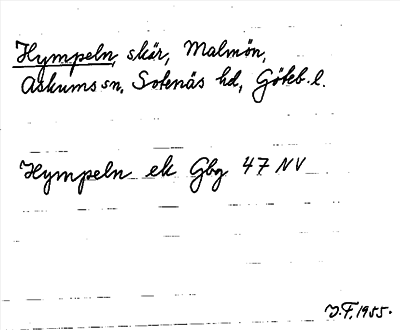 Hympeln, skär, Malmön,
Askums sn, Sotenäs hd, Göteb. l.
Hympeln ek Gbg 47 NV
J.F. 1955.